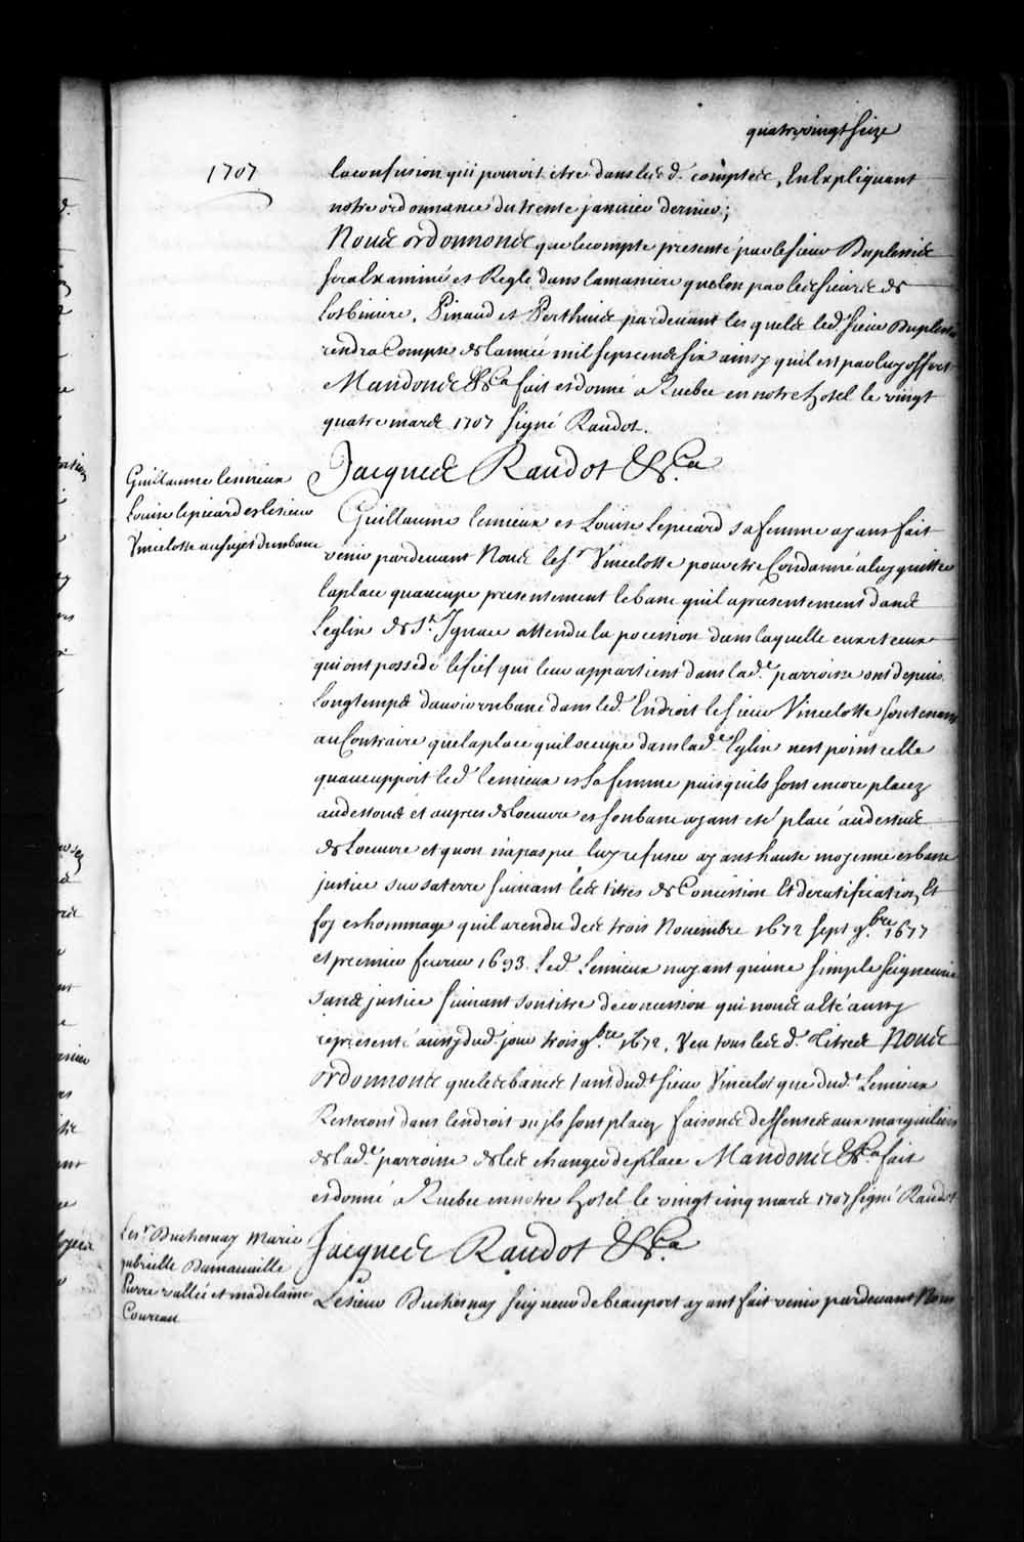 quatrevingt seize
1707
la confusion qui pouroit etre dans lesd. comptes, En Expliquant
notre ordonnance du trente janvier dernier;
Nous ordonnons que le compte presenté par le sieur Duplessis
sera Examiné et Reglé dans la maniere quelon par les sieurs de
Lotbiniere, Pinaud et Perthuis pardevant lesquels led. sieur Duplessis
rendra Compte de lannée mil sept cens six ainsy quil est par luy offert
Mandons &c.a fait et donné a Quebec en notre hotel le vingt
quatre mars 1707 signé Raudot.
Jacques Raudot &c.a
Guillaume lemieux
Louise lepicard et le sieur
Vincelotte au sujet dun banc
Guillaume lemieux et Louise Lepicard sa femme ayans fait
venir pardevant Nous le s.r Vincelotte pour etre Condamné a luy quitter
la place quoccupe presentement le banc quil a presentement dans
Leglise de S.t Ignace attendu la possession dans laquelle eux et ceux
qui ont possedé le fief qui leur appartient dans lad.e parroisse ont depuis
Longtemps davoir un banc dans led. Endroit le sieur Vincelotte soutenant
au Contraire que la place quil occupe dans lad.e Eglise nest point celle
quoccuppoit led. lemieux et sa femme puis quils sont encore placez
audessous et aupres de loeuvre et son banc ayant eté placé audessus
de Loeuvre et quon na pas pu luy refuser ayant haute moyenne et basse
justice sur sa terre suivant les titres de Concession Et de ratification, Et
foy et hommage quil a rendu des trois Novembre 1672 sept 9.bre 1677
et premier fevrier 1693. Led. Lemieux nayant quune simple seigneurie
sans justice suivant son titre de concession qui nous a Eté aussy
representé aussy dud. jour trois 9.bre 1672, Veu tous lesd. titres Nous
ordonnons que les bancs tant dud.t sieur Vincelot que dud.t Lemieux
Resteront dans lendroit ou ils sont placez faisons deffenses aux marguilliers
de lad.e parroisse de les changer de place Mandons &c.a fait
et donné a Quebec en notre hotel le vingt cinq mars 1707 signé Raudot
Le s.r Duchesnay Marie
gabrielle Damanville
Pierre vallée et madelaine
Coureau
Jacques Raudot &c.a
Le sieur Duchesnay seigneur de beauport ayant fait venir pardevant Nous